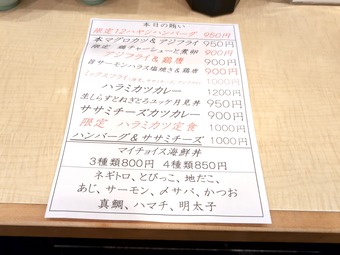 本日の賄い
限定12ハヤシハンバーグ 950円
本マグロカツ&アジフライ 950円
限定 鶏チャーシューと煮卵 900円
アジフライ&鶏唐 900円
旨サーモンハラス塩焼き&鶏唐 900円
ミックスフライ 1000円
ハラミカツカレー 1200円
生しらすとねぎとろユッケ月見丼 950円
ササミチーズカツカレー 900円
限定 ハラミカツ定食 1000円
ハンバーグ&ササミチーズ 1000円
マイチョイス海鮮丼
3種類800円 4種類850円
ネギトロ、とびっこ、地だこ、
あじ、サーモン、〆サバ、かつお
真鯛、ハマチ、明太子